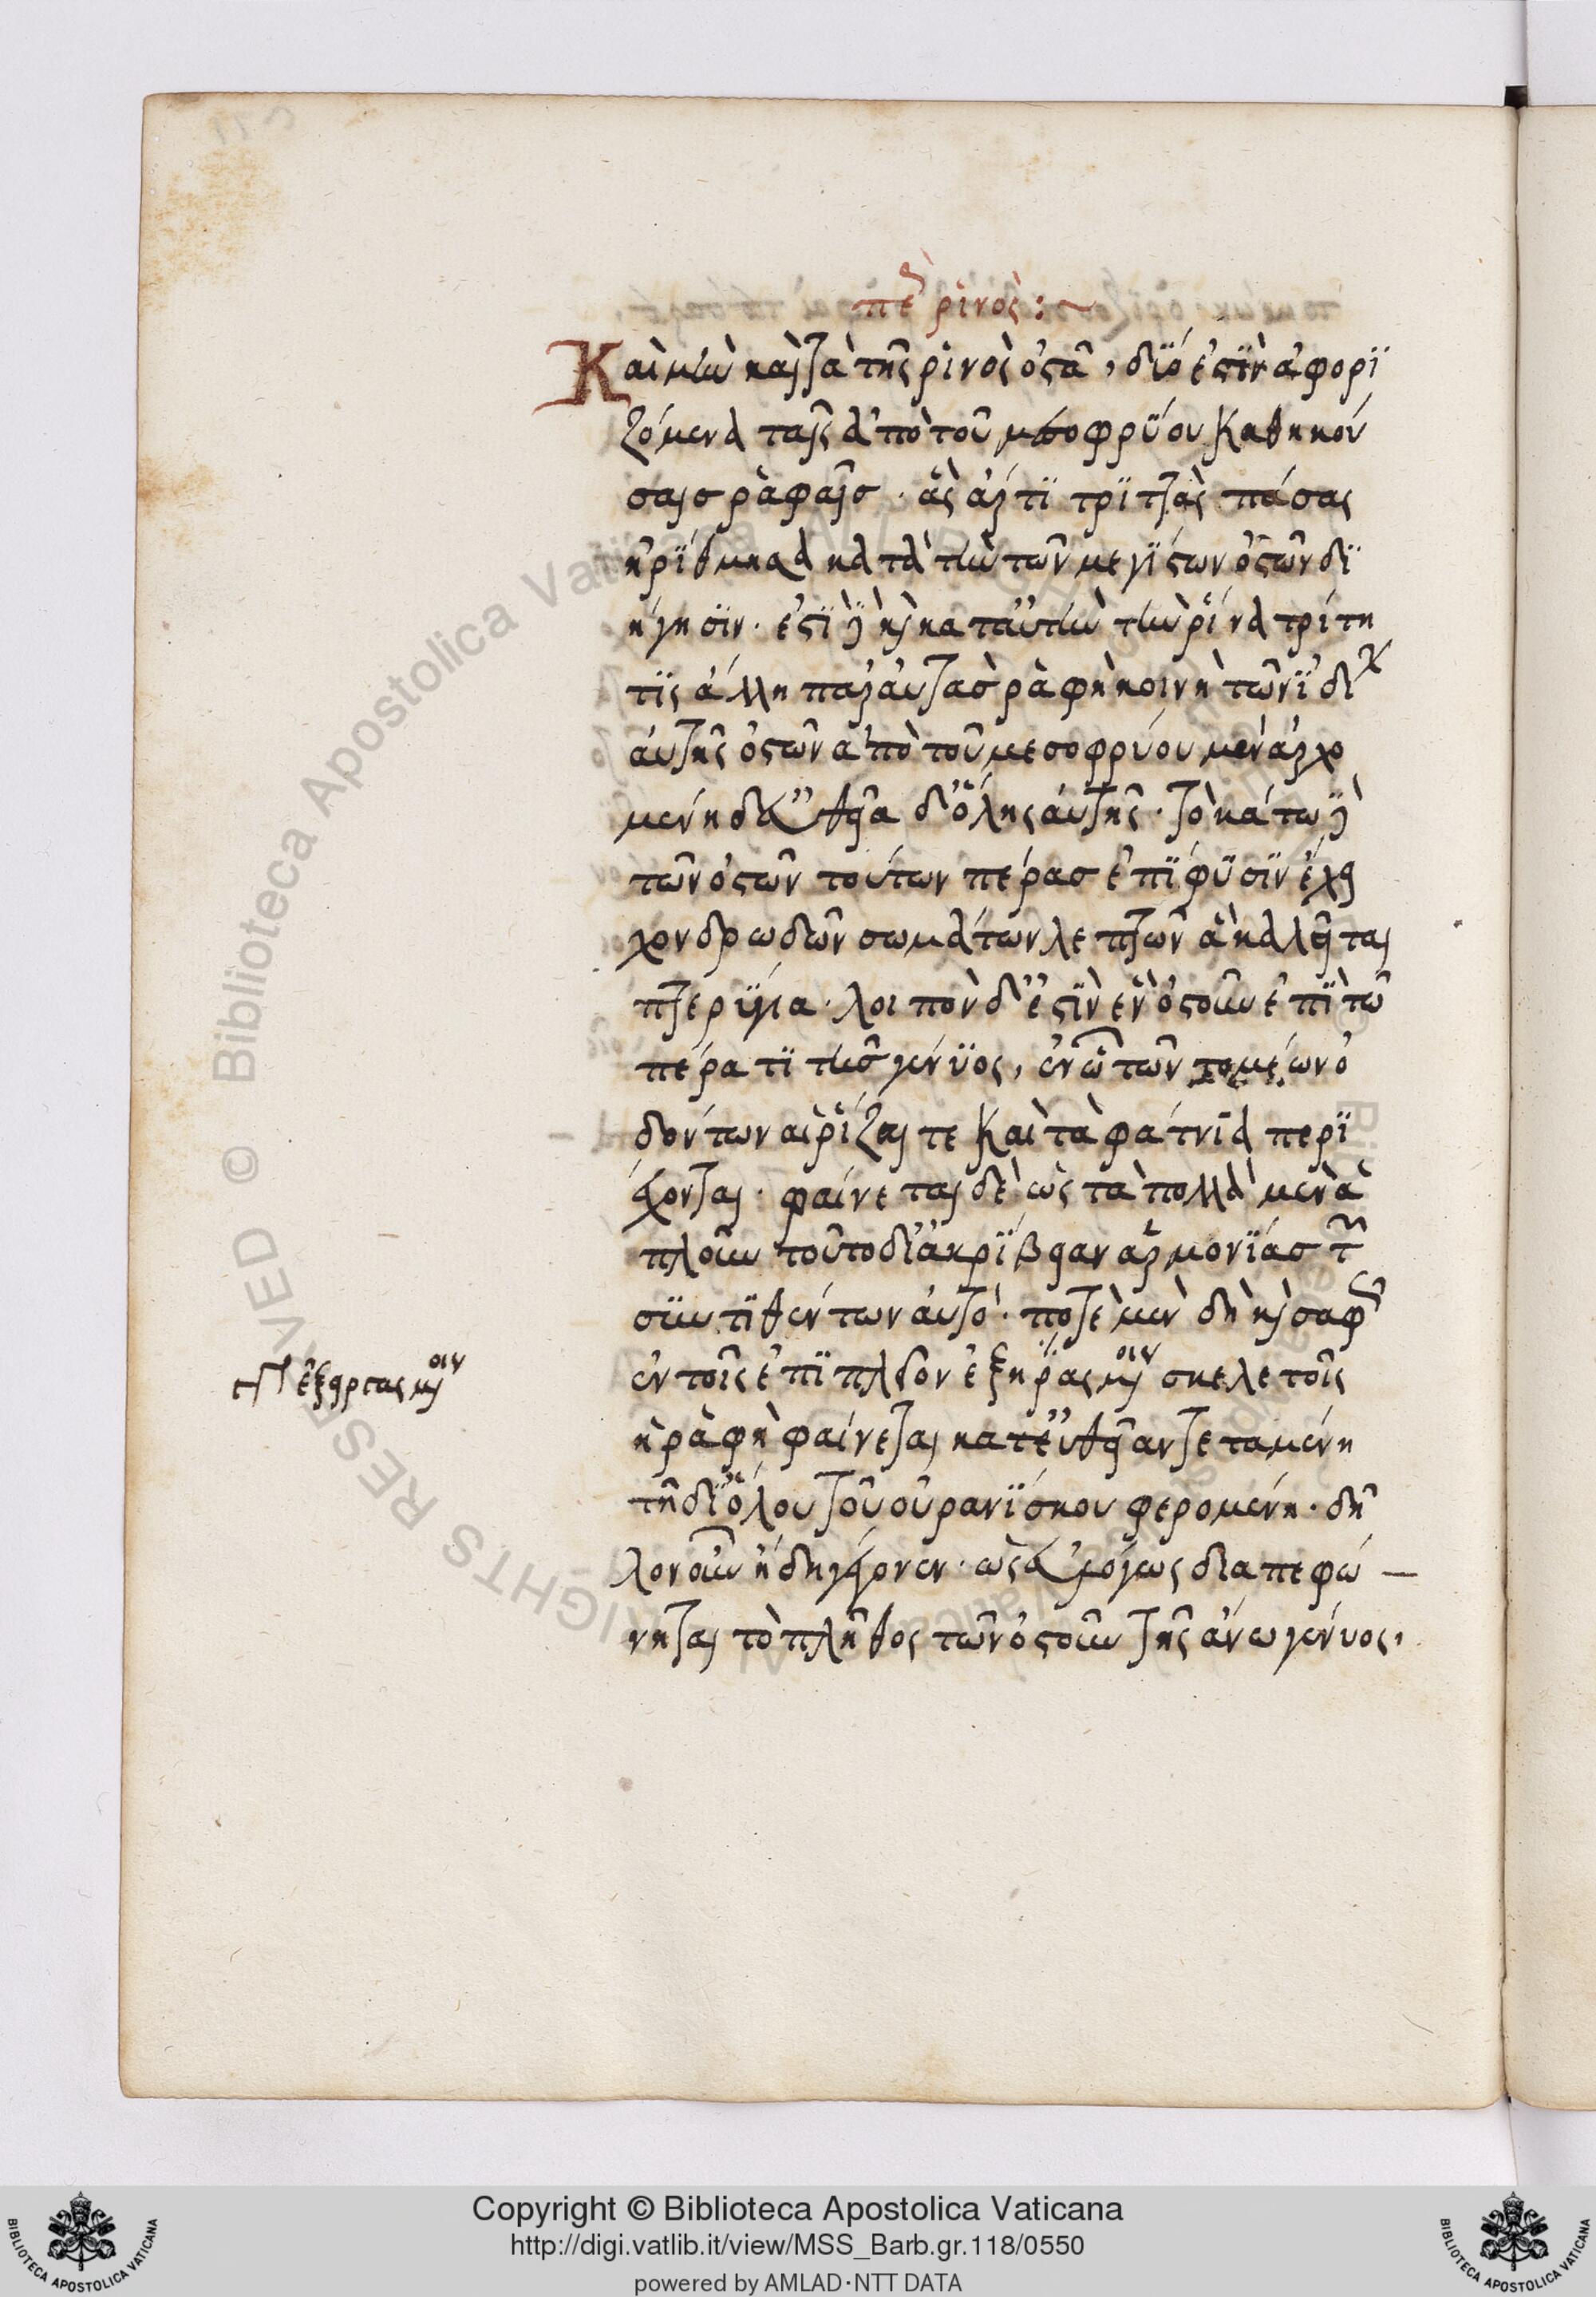 περὶ ῥινός :~
Καὶ μὴν καὶ τὰ τῆς ῥινὸς ὀστᾶ, δύο ἐστὶν ἀφορι
ζόμενα ταῖς ἀπὸ τοῦ μεσοφρύου καθηκού
σαις ῥαφαῖς · ἃς ἄρτι τριττὰς πάσας
ἠρίθμησα κατὰ τὴν τῶν μεγίστων ὀστῶν δι
ήγησιν · ἐστὶ δὲ καὶ κατ' αὐτὴν τὴν ῥίνα τρίτη
τις ἄλλη παρ' αὐτὰς ῥαφὴ κοινὴ τῶν ἰδί
αὐτῆς ὀστῶν ἀπὸ τοῦ μεσοφρύου μὲν ἀρχο
μένη δι' εὐθεῖα δι' ὅλης αὐτῆς · τὸ κάτω δὲ
τῶν ὀστῶν τούτων πέρας ἐπίφυσιν ἔχει
χονδρωδῶν σωμάτων λεπτῶν ἃ καλεῖται
πτερύγια · λοιπὸν δ' ἐστὶν ἓν ὀστοῦν ἐπὶ τῷ
πέρατι τῆς γένυος, ἐν ᾧ τῶν τομέων ὀ
δόντων αἱ ῥίζαι τε καὶ τὰ φάτνια περι
έχονται · φαίνεται δὲ ὡς τὰ πολλὰ μὲν ἁ
πλοῦν τοῦτο δι' ἀκρίβειαν ἁρμονίας τῶν
συντιθέντων αὐτό · ποτὲ μὲν δὴ καὶ σαφῶς
ἐν τοῖς ἐπὶ πλέον ἐξηρασμένοιν σκελετοῖς
ἡ ῥαφὴ φαίνεται κατ' εὐθεῖαν τεταμένη
τῇ δι' ὅλου τοῦ οὐρανίσκου φερομένη · δῆ
λον οὖν ἤδη γέγονεν · ὡς οὐ μόγως διαπεφώ
νηται τὸ πλῆθος τῶν ὀστοῦν τῆς ἄνω γένυος,